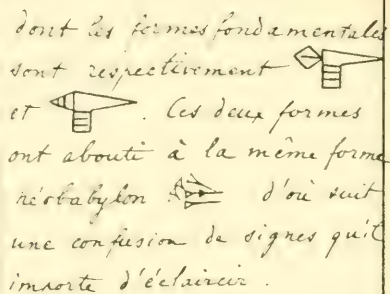 dont les formes fondamentales
sont respectivement
et . Ces deux formes
ont abouti à la même forme
néobabylon d'où suit
une confusion de signes qu'il
importe d'éclaircir.